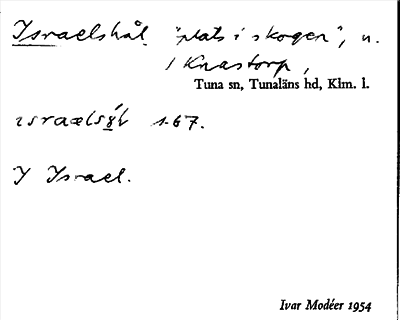 Israelshål "plats i skogen", n.
1 Knastorp,
Tuna sn, Tunaläns hd, Klm. l.
1.67.
J Israel.
Ivar Modéer 1954